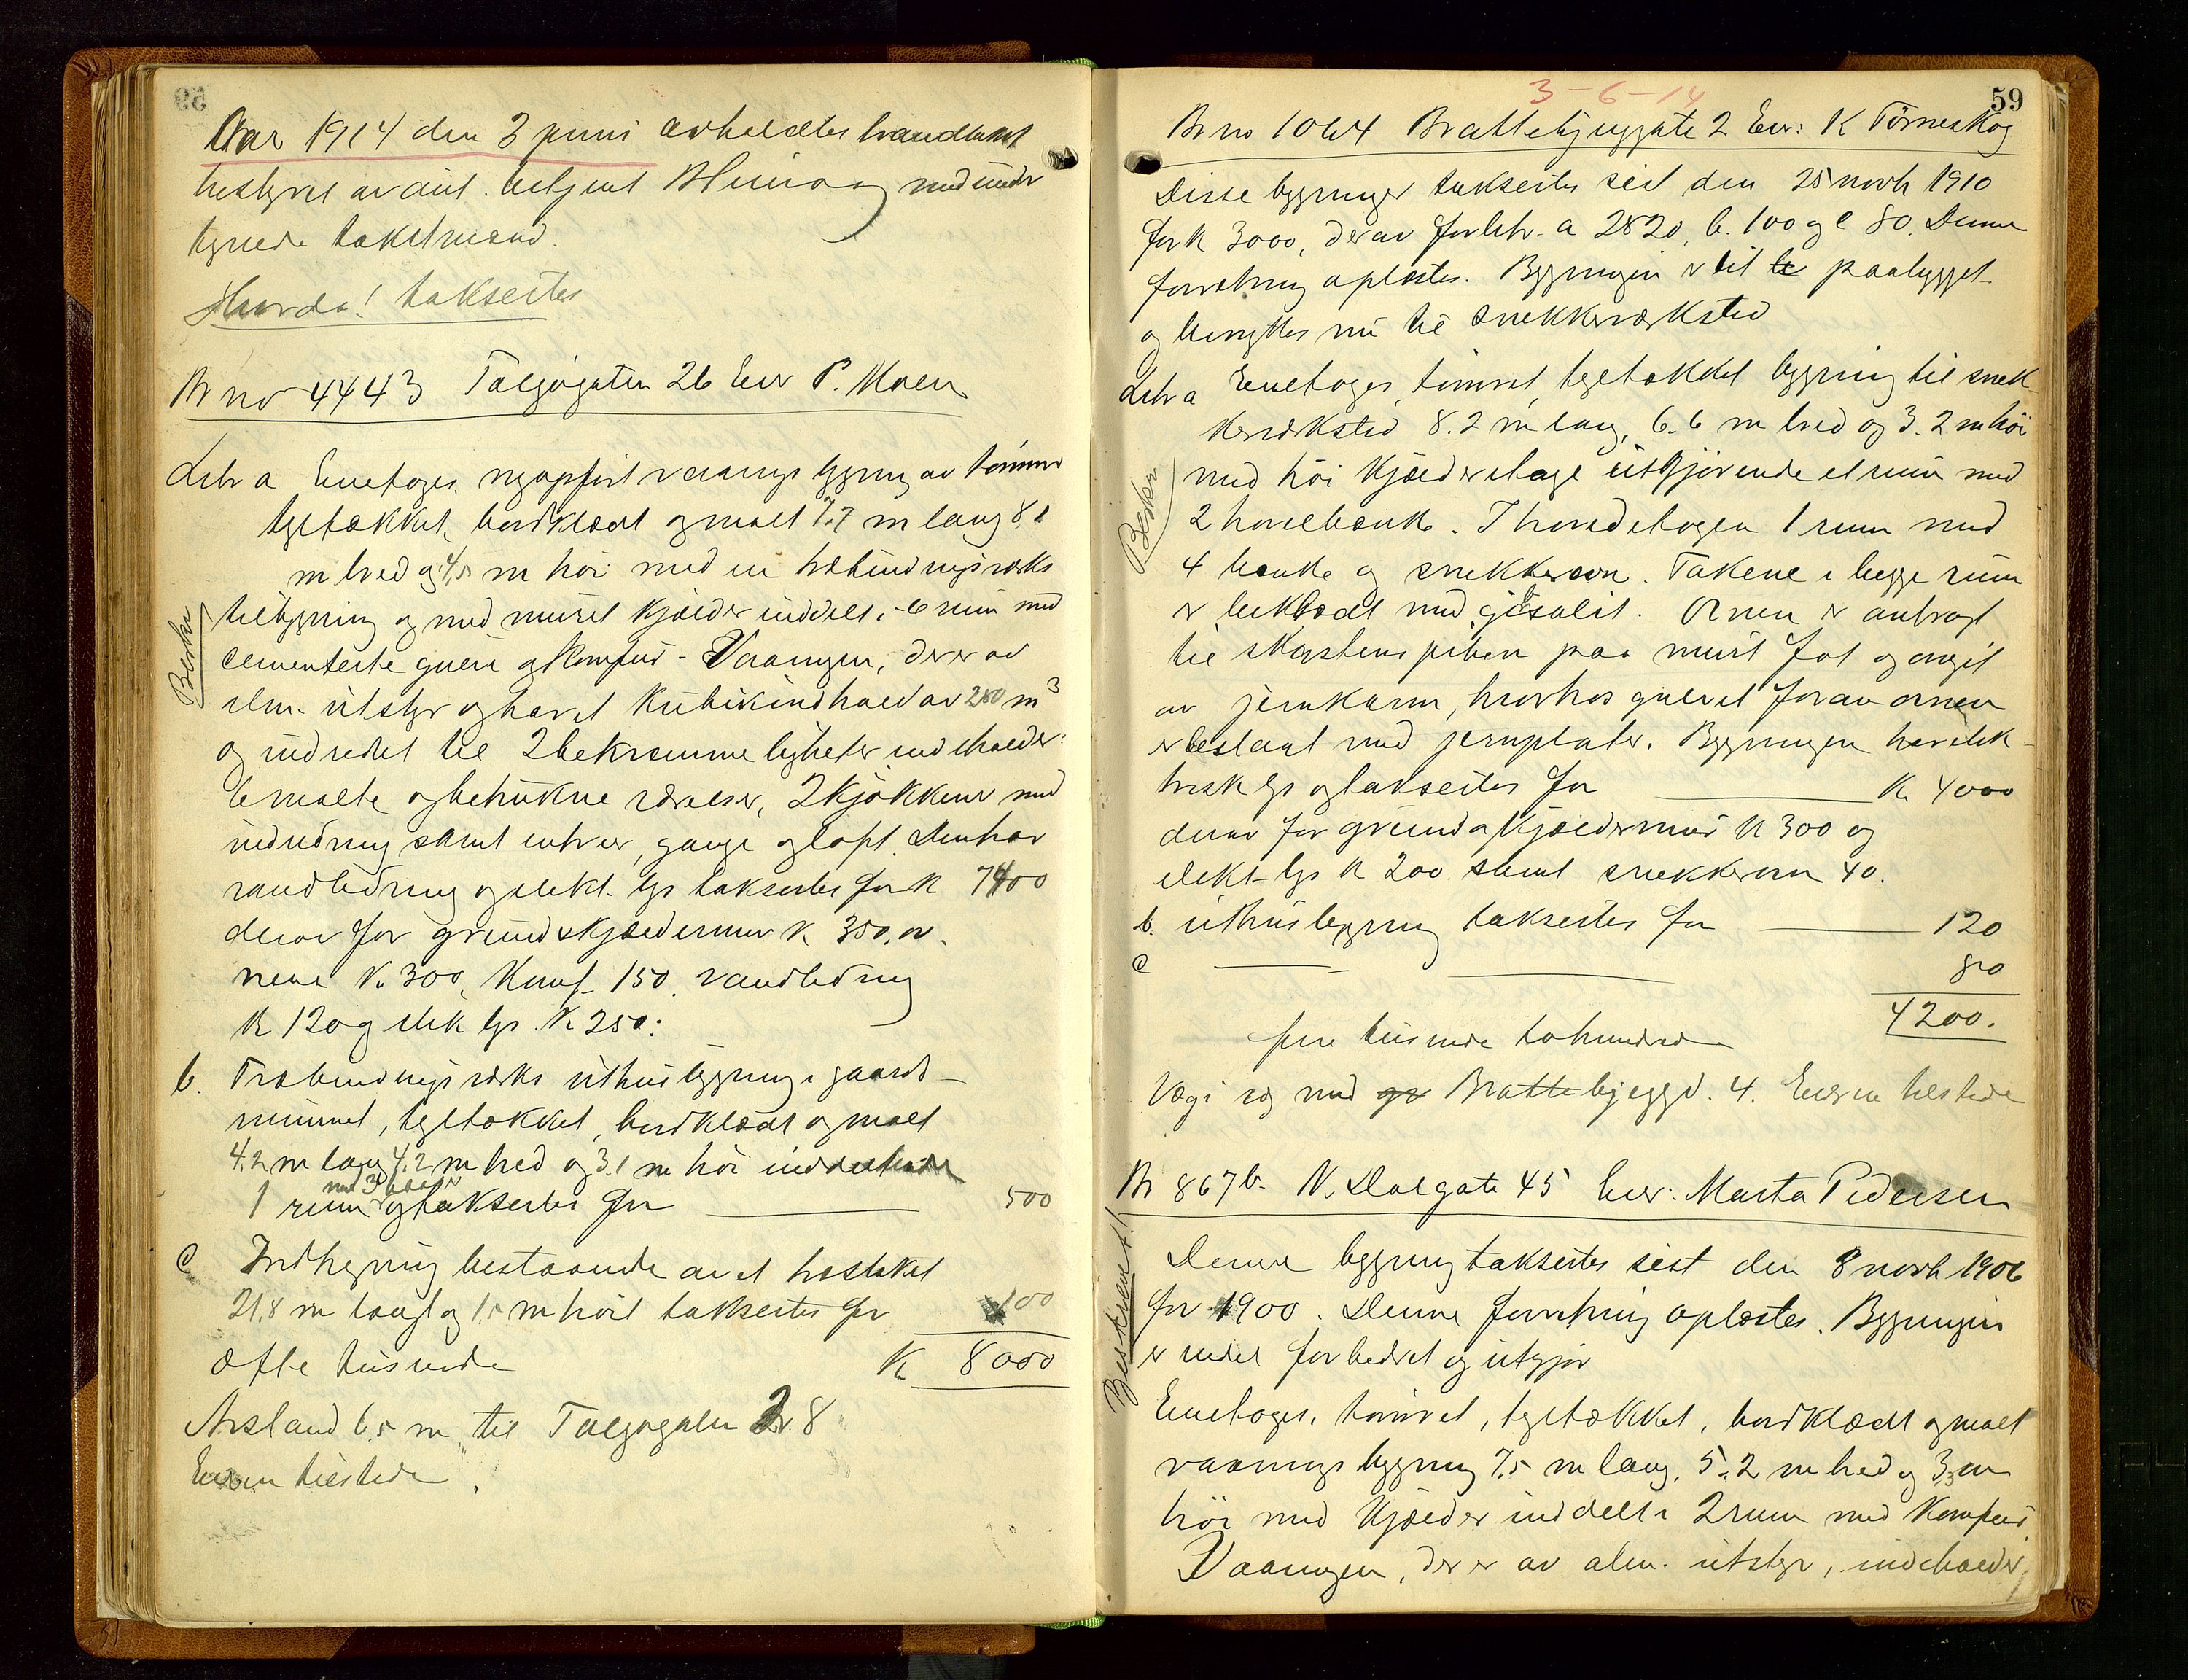 Aar 1914 den 3 juni avholdtes brandtakst
bestyret av aut. betjent og med under
tegnede takstmænd.
Hvorda! takseites
Br no 4443 Talgjøgaten 26 Eier P. Moen
Litr a Enetages nyopført vaaningsbygning av tømmer
tegltækket, bordklædt og malt 7.7 m lang 8,1
m bred og 4,5 m høi med en træbindingsverks
tilbygning og med muret kjælder inddelt i 6 rum med
Beskr
cementerte gulv og komfur - Vaaningen, der er av
alm. utstyr og har et kubikindhold av 280 m3
og indredet til 2 bekvemmeligheter indeholder:
6 malte og betrukne værelser, 2 kjøkkener med
indredning samt entreer, gange og loft. Den har
vandledning og elekt. lys takseites for K 7400
derav for grund & kjældermur K. 350, ov-
nene K. 300, Komf. 150. vandledning
K 120 og elek lys. K 250:
b. Træbindingsverks uthusbygning i gaards-
rummet, tegltækket, bordklædt og malt
4.2 m lang 4.2 m bred og 3.1 m høi
med 3
1 rum og takseites for 500
c Indhegning bestaaende av et træstaket
21,8 m langt og 1,5 m høit takseites for 100
Otte tusende K 8000
Avstand 6,5 m til Talgjøgaten 28
Eieren tilstede.
59
3-6-14
Br no 1064 Brattebjerggate 2 Eier: K Tørneskog
Disse bygninger takseites sist den 25 novb 1910
for K 3000, derav for litr. a 2820, b. 100 og c 80. Denne
forretning oplæstes. Bygningen er blit paabygget
og benyttes nu til snekkerverksted
Litr a Enetages, tømret, tegltækket bygning til snek
kerverksted 8.2 m lang, 6.6 m bred og 3.2 m høi
Beskr
med høi kjælderetage utgjørende et rum med
2 høvelbænke. I hovedetagen 1 rum med
4 bænke og snekkerovn. Takene i begge rum
er beklædt med. Ovnen er anbragt
til skorstenspiben paa muret fot og omgit
av jernkarm, hvorhos gulvet foran ovnen
er beslaat med jernplater. Bygningen har elek-
trisk lys og takseites for K. 4000
derav for grund og kjældermur K 300 og
elekt lys K 200 samt snekkerovn 40.
b. uthusbygning takseites for 120
c 80
4200.
fire tusende tohundrede
Væg i væg med Brattebjerggd. 4. Eieren tilstede
Br 867 b. N. Dalgate 45 Eier: Marta Pedersen
Denne bygning takseites sist den 8 novb 1906
for 1900. Denne forretning oplæstes. Bygningen
er endel forbedret og utgjør
Beskrevet!
Enetages, tømret, tegltækket, bordklædt og malt
vaaningsbygning 7,5 m lang, 5,2 m bred og 3,3 m
høi med kjælder inddelt i 2 rum med komfur.
Vaaningen, der er av alm. utstyr, indeholder,